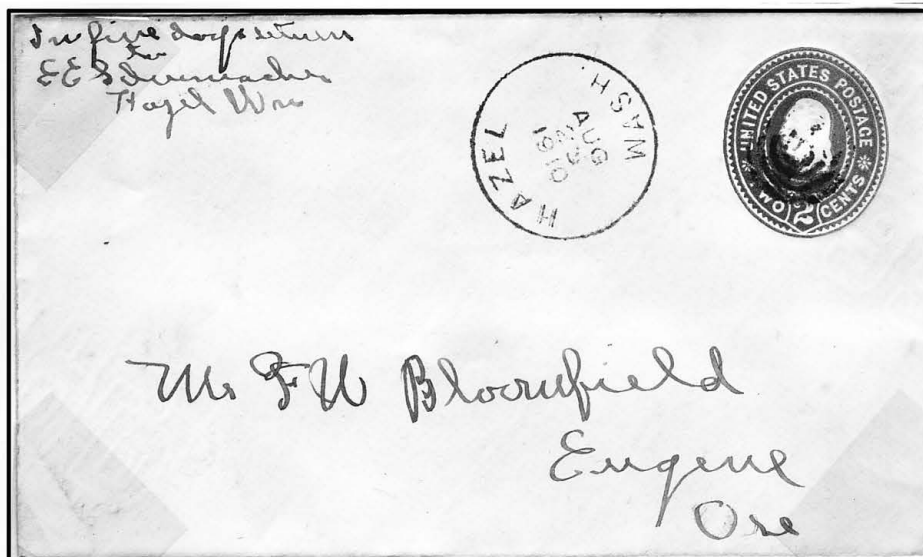 In five days return
to
E E Schumacher
Hazel Wn
HAZEL WASH.
AUG
29
1910
UNITED STATES POSTAGE
TWO 2 CENTS
Mr F W Bloomfield
Eugene
Ore